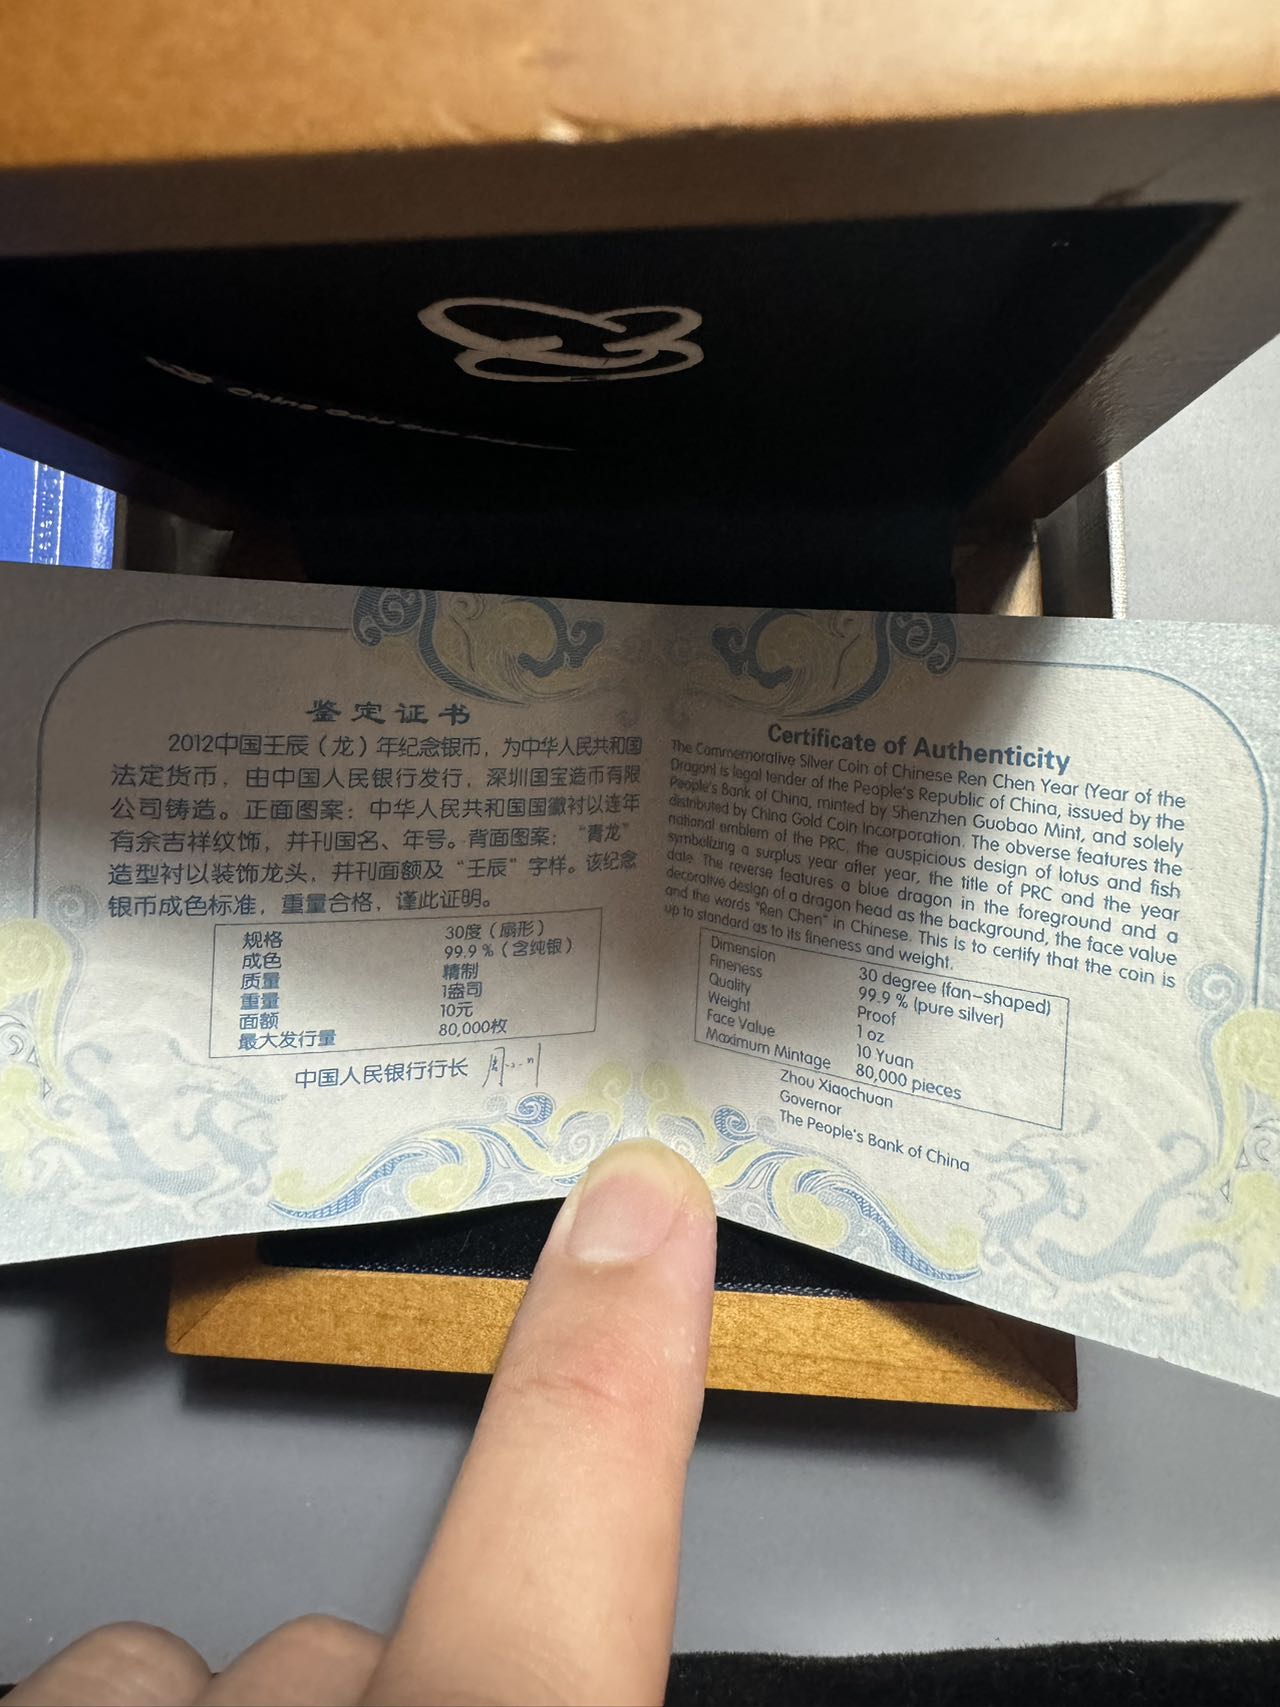 China Gold Coin
鉴定证书
2012中国壬辰（龙）年纪念银币，为中华人民共和国
法定货币，由中国人民银行发行，深圳国宝造币有限
公司铸造。正面图案：中华人民共和国国徽衬以连年
有余吉祥纹饰，并刊国名、年号。背面图案：“青龙”
造型衬以装饰龙头，并刊面额及“壬辰”字样。该纪念
银币成色标准，重量合格，谨此证明。
规格 30度（扇形）
成色 99.9％（含纯银）
质量 精制
重量 1盎司
面额 10元
最大发行量 80,000枚
中国人民银行行长
Certificate of Authenticity
The Commemorative Silver Coin of Chinese Ren Chen Year (Year of the
Dragon) is legal tender of the People's Republic of China, issued by the
People's Bank of China, minted by Shenzhen Guobao Mint, and solely
distributed by China Gold Coin Incorporation. The obverse features the
national emblem of the PRC, the auspicious design of lotus and fish
symbolizing a surplus year after year, the title of PRC and the year
date. The reverse features a blue dragon in the foreground and a
decorative design of a dragon head as the background, the face value
and the words "Ren Chen" in Chinese. This is to certify that the coin is
up to standard as to its fineness and weight.
Dimension 30 degree (fan-shaped)
Fineness 99.9 % (pure silver)
Quality Proof
Weight 1 oz
Face Value 10 Yuan
Maximum Mintage 80,000 pieces
Zhou Xiaochuan
Governor
The People's Bank of China